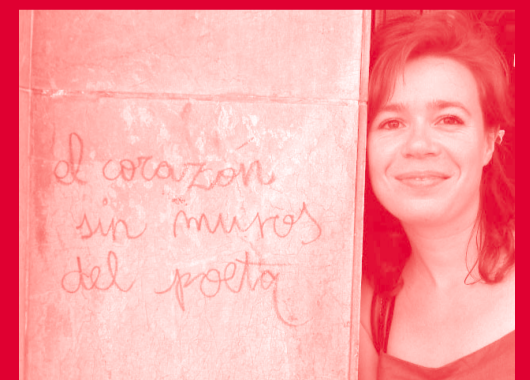 el corazón
sin muros
del poeta